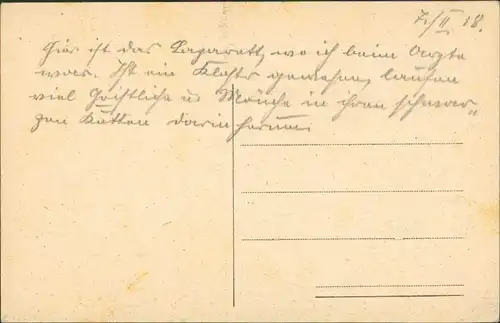 7./II 18.
Hier ist das Lazarett, wo ich beim Arzte
war. Ist ein Kloster gewesen, laufen
viel Geistliche u. Mönche in ihren schwar„
zen Kutten darin herum.